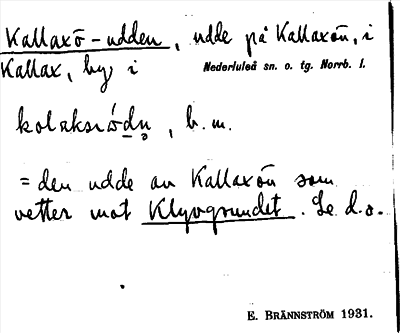 Kallaxö-udden, udde på Kallaxön, i
Kallax, by i Nederluleå sn. o. tg. Norrb. l.
b. m.
= den udde av Kallaxön som
vetter mot Klyvgsundet. Se d. o.
E. BRÄNNSTRÖM 1931.